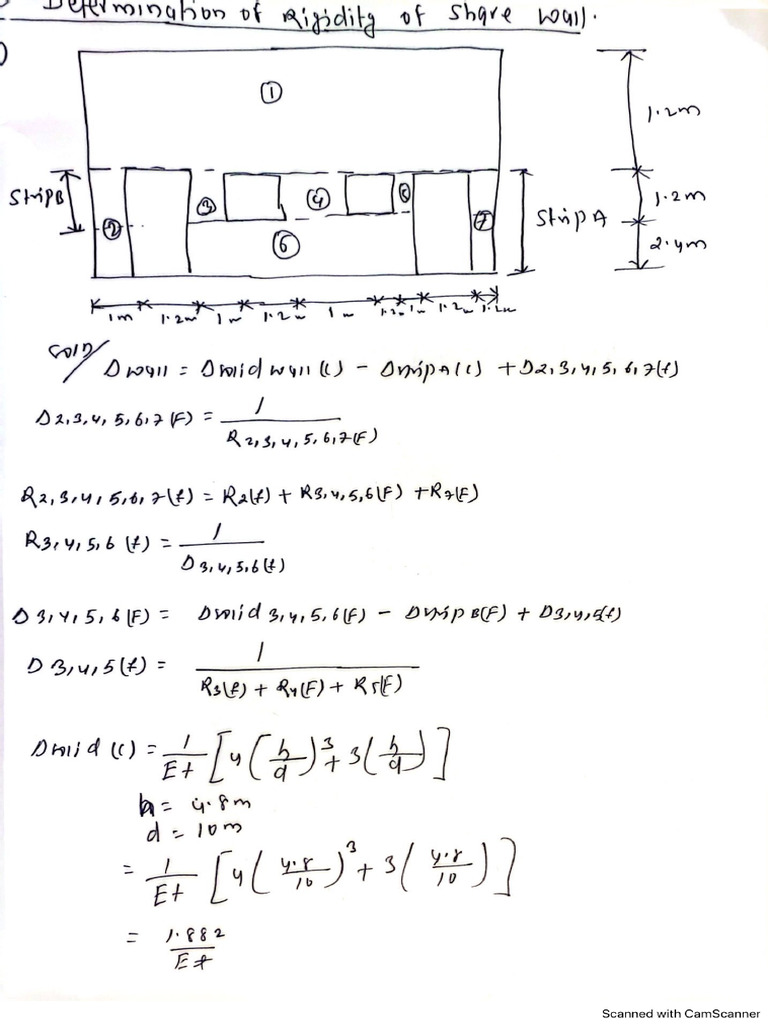 Determination of Rigidity of Share wall.
1
1.2m
Strip B
3
4
5
1.2m
2
7
Strip A
6
2.4m
1m 1.2m 1m 1.2m 1m 1.2m 1m 1.2m 1.2m
Soln
Δwall = Δsolid wall (c) - Δstrip A (c) + Δ2,3,4,5,6,7(f)
Δ2,3,4,5,6,7 (F) = 1 / R2,3,4,5,6,7(F)
R2,3,4,5,6,7(f) = R2(f) + R3,4,5,6(F) + R7(F)
R3,4,5,6 (f) = 1 / Δ3,4,5,6(f)
Δ3,4,5,6(F) = Δsolid 3,4,5,6(F) - Δstrip B(F) + Δ3,4,5(f)
Δ3,4,5(f) = 1 / R3(f) + R4(F) + R5(F)
Δsolid (c) = 1/Et [4(h/d)³ + 3(h/d)]
h = 4.8m
d = 10m
= 1/Et [4(4.8/10)³ + 3(4.8/10)]
= 1.882/Et
Scanned with CamScanner